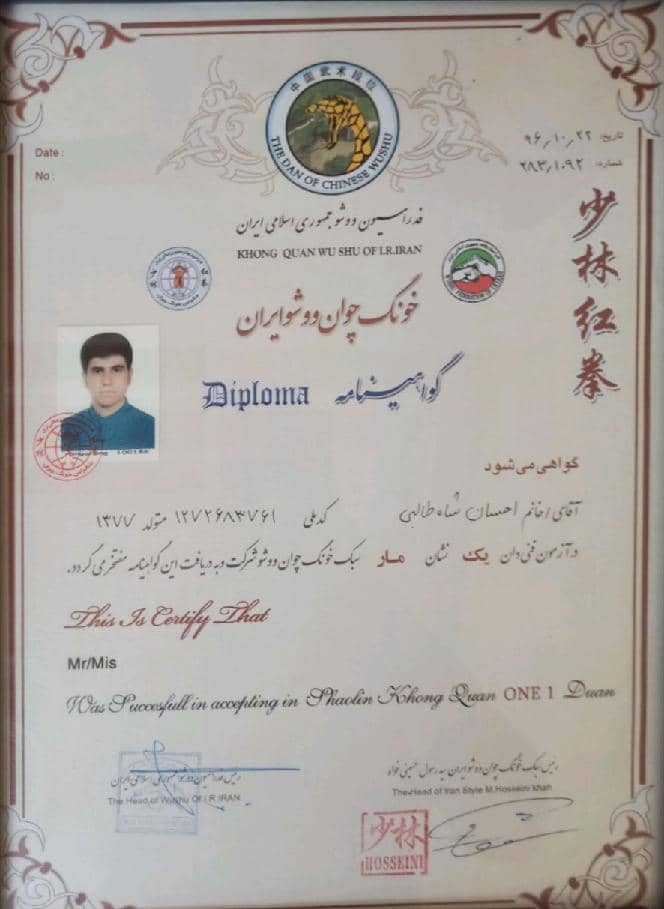 中国武术段位
THE DAN OF CHINESE WUSHU
Date :
تاریخ: ۹۶/۱۰/۲۲
No :
شماره: ۲۸۳/۱۰۹۲
少林红拳
فدراسیون ووشو جمهوری اسلامی ایران
KHONG QUAN WU SHU OF I.R.IRAN
خونگ چوان ووشو ایران
Diploma گواهینامه
گواهی می شود
آقای/خانم احسان شاه طالبی کد ملی ۱۲۷۲۶۸۳۷۶۱ متولد ۱۳۷۷
در آزمون فنی دان یک نشان مار سبک خونگ چوان ووشو شرکت و به دریافت این گواهینامه مفتخر می گردد.
This Is Certify That
Mr/Mis
Was Succesfull in accepting in Shaolin Khong Quan ONE 1 Duan
رئیس سبک خونگ چوان ووشو ایران سید رسول حسینی خواه
The Head of Iran Style M.Hosseini khah
رئیس فدراسیون ووشو جمهوری اسلامی ایران
The Head of Wushu Of I.R IRAN
少林
HOSSEINI